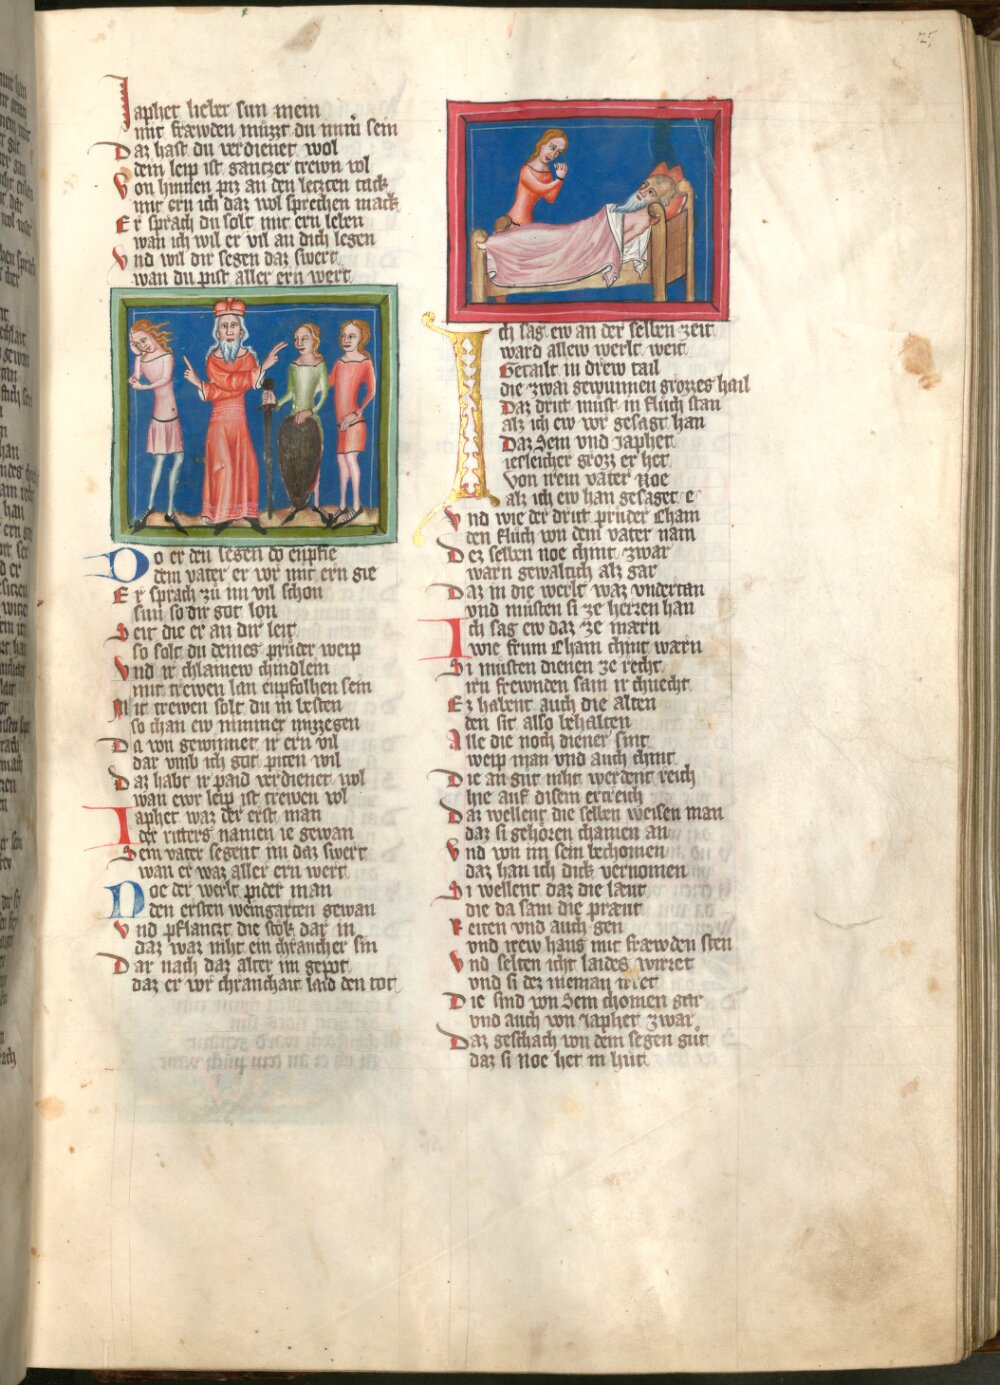 Japhet lieber sun mein
mit fræwden müzzt du nun sein
Daz hast du verdienet wol
dein leip ist gantzer trewn vol
Von hinnen piz an den letzten tack
mit ern ich daz wol sprechen mack
Er sprach du solt mit ern leben
wan ich wil er vil an dich legen
Vnd wil dir segen daz swert
wan du pist aller ern wert
Do er den segen do enpfie
dem vater er vor mit ern gie
Er sprach zü im vil schon
sun so dir got lon
Seit die er an dir leit
so solt du deines prüder weip
Vnd ir chlainew chindlein
mit trewen lan enpfolhen sein
Mit trewen solt du in besten
so chan ew nimmer misszegen
Da von gewinnet ir ern vil
dar vmb ich got piten wil
Daz habt ir paid verdienet wol
wan ewr leip ist trewen vol
Japhet waz der erst man
der ritters namen ie gewan
Sein vater segent im daz swert
wan er waz aller ern wert
Noe der werlt pider man
den ersten weingarten gewan
Vnd pflantzt die stök dar in
daz waz niht ein chrancher sin
Dar nach daz alter im gepot
daz er vor chranchait laid den tot
25
Ich sag ew an der selben zeit
ward allew werlt weit
Getailt in drew tail
die zwai gewunnen grozzes hail
Daz drit müst in flüch stan
alz ich ew vor gesagt han
Daz Sem vnd Japhet
iesleicher grozz er het
Von irem vater Noe
alz ich ew han gesaget e
Vnd wie der drit prüder Cham
den flüch von dem vater nam
Dez selben noe chint zwar
warn gewaltich alz gar
Daz in die werlt waz vndertan
vnd müsten si ze herren han
Ich sag ew daz ze mærn
wie frum Cham chint wærn
Si müsten dienen ze recht
irn frewnden sam ir chnecht
Ez habent auch die alten
den sit also behalten
Alle die noch diener sint
weip man vnd auch chint
Die an güt niht werdent reich
hie auf disem ertreich
Daz wellent die selben weisen man
daz si gehören chamen an
Vnd von im sein bechomen
daz han ich dick vernomen
Si wellent daz die lænt
die da sam die prænt
Reiten vnd auch gen
vnd irew haus mit fræwden sten
Vnd selten icht laides wirret
vnd si dez nieman irret
Die sind von Sem chomen gar
vnd auch von Japhet zwar
Daz geschach von dem segen güt
daz si noe het in hüt